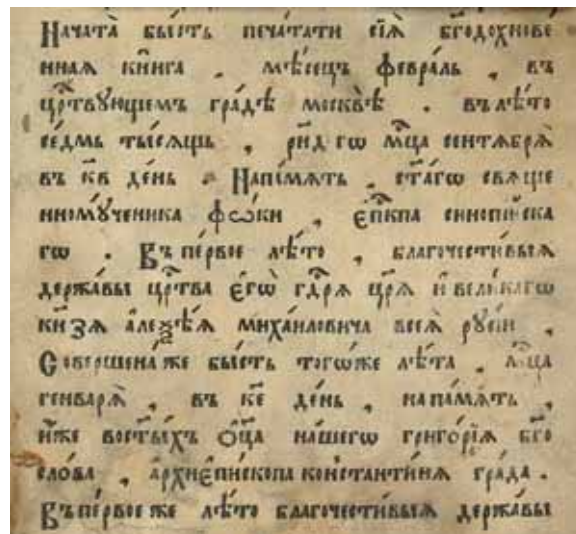 Начата̀ бы́сть печа́тати сїѧ̀ бг҃одохнове́
ннаѧ кни҃га . мѣ́сецъ февра́ль , въ
црⷭ҇твꙋющемъ гра́дѣ москвѣ̀ . въ лѣ́то
се́дмь ты́сѧщь , рн҃д гѡ мцⷭ҇а сентѧбрѧ̀
въ кв҃ де́нь . На па́мѧть , ст҃а́гѡ свѧще
нномꙋ́ченика фѡ́ки , єпⷭ҇кпа синопі́йска
гѡ . Въ пе́рвое лѣ́то , благочести́выѧ
держа́вы црⷭ҇тва є҆гѡ̀ гдⷭ҇рѧ цр҃ѧ и҆ вели́кагѡ
кн҃ѕѧ а҆леѯѣ́ѧ миха́иловича всеѧ̀ рꙋсі́и ,
Соверше́на же бы́сть тогѡ́же лѣ́та , мцⷭ҇а
генварѧ̀ , въ ке҃ де́нь , на па́мѧть ,
и҆́же во ст҃ы́хъ ѻ҆ц҃а на́шегѡ григо́рїѧ бг҃о
сло́ва , а҆рхиєпи́скопа константи́нѧ гра́да .
Въ пе́рвое же лѣ́то благочести́выѧ держа́вы